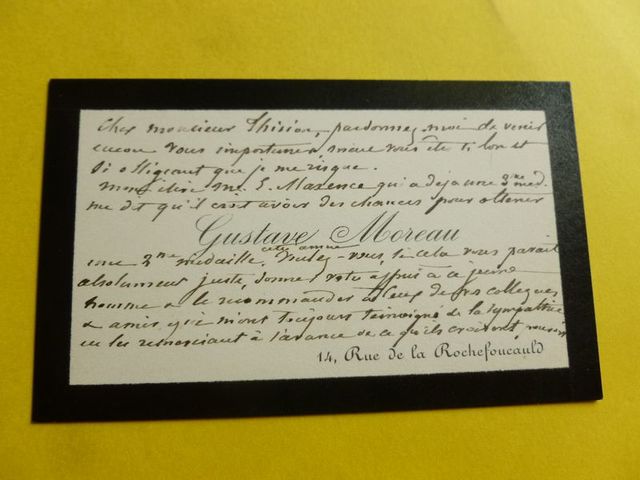 Cher monsieur Thirion, pardonnez moi de venir
encore vous importuner mais vous êtes si bon et
si obligeant que je me risque.
Mon élève Mr. E. Maxence qui a déjà une 3me med.
me dit qu'il croit avoir des chances pour obtenir
Gustave Moreau
cette année
une 2me médaille. Voulez-vous, si cela vous parait
absolument juste, donner votre appui à ce jeune
homme & le recommander à ceux de vos collègues
& amis qui m'ont toujours témoigné de la sympathie
en les remerciant à l'avance de ce qu'ils croiront
14, Rue de la Rochefoucauld